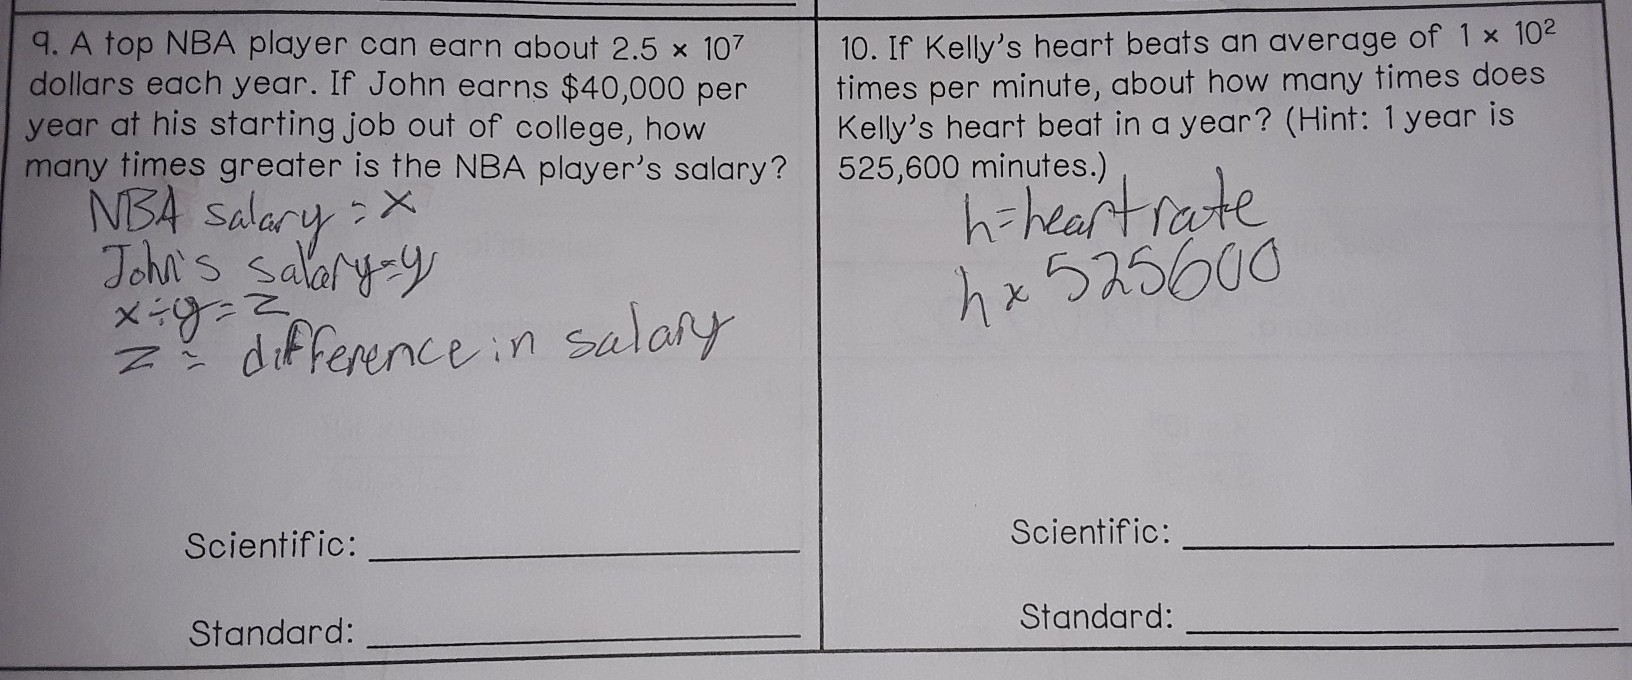 9. A top NBA player can earn about 2.5 × 10⁷
dollars each year. If John earns $40,000 per
year at his starting job out of college, how
many times greater is the NBA player's salary?
NBA salary = x
John's salary = y
x ÷ y = z
z = difference in salary
Scientific:
Standard:
10. If Kelly's heart beats an average of 1 × 10²
times per minute, about how many times does
Kelly's heart beat in a year? (Hint: 1 year is
525,600 minutes.)
h = heart rate
h x 525600
Scientific:
Standard: